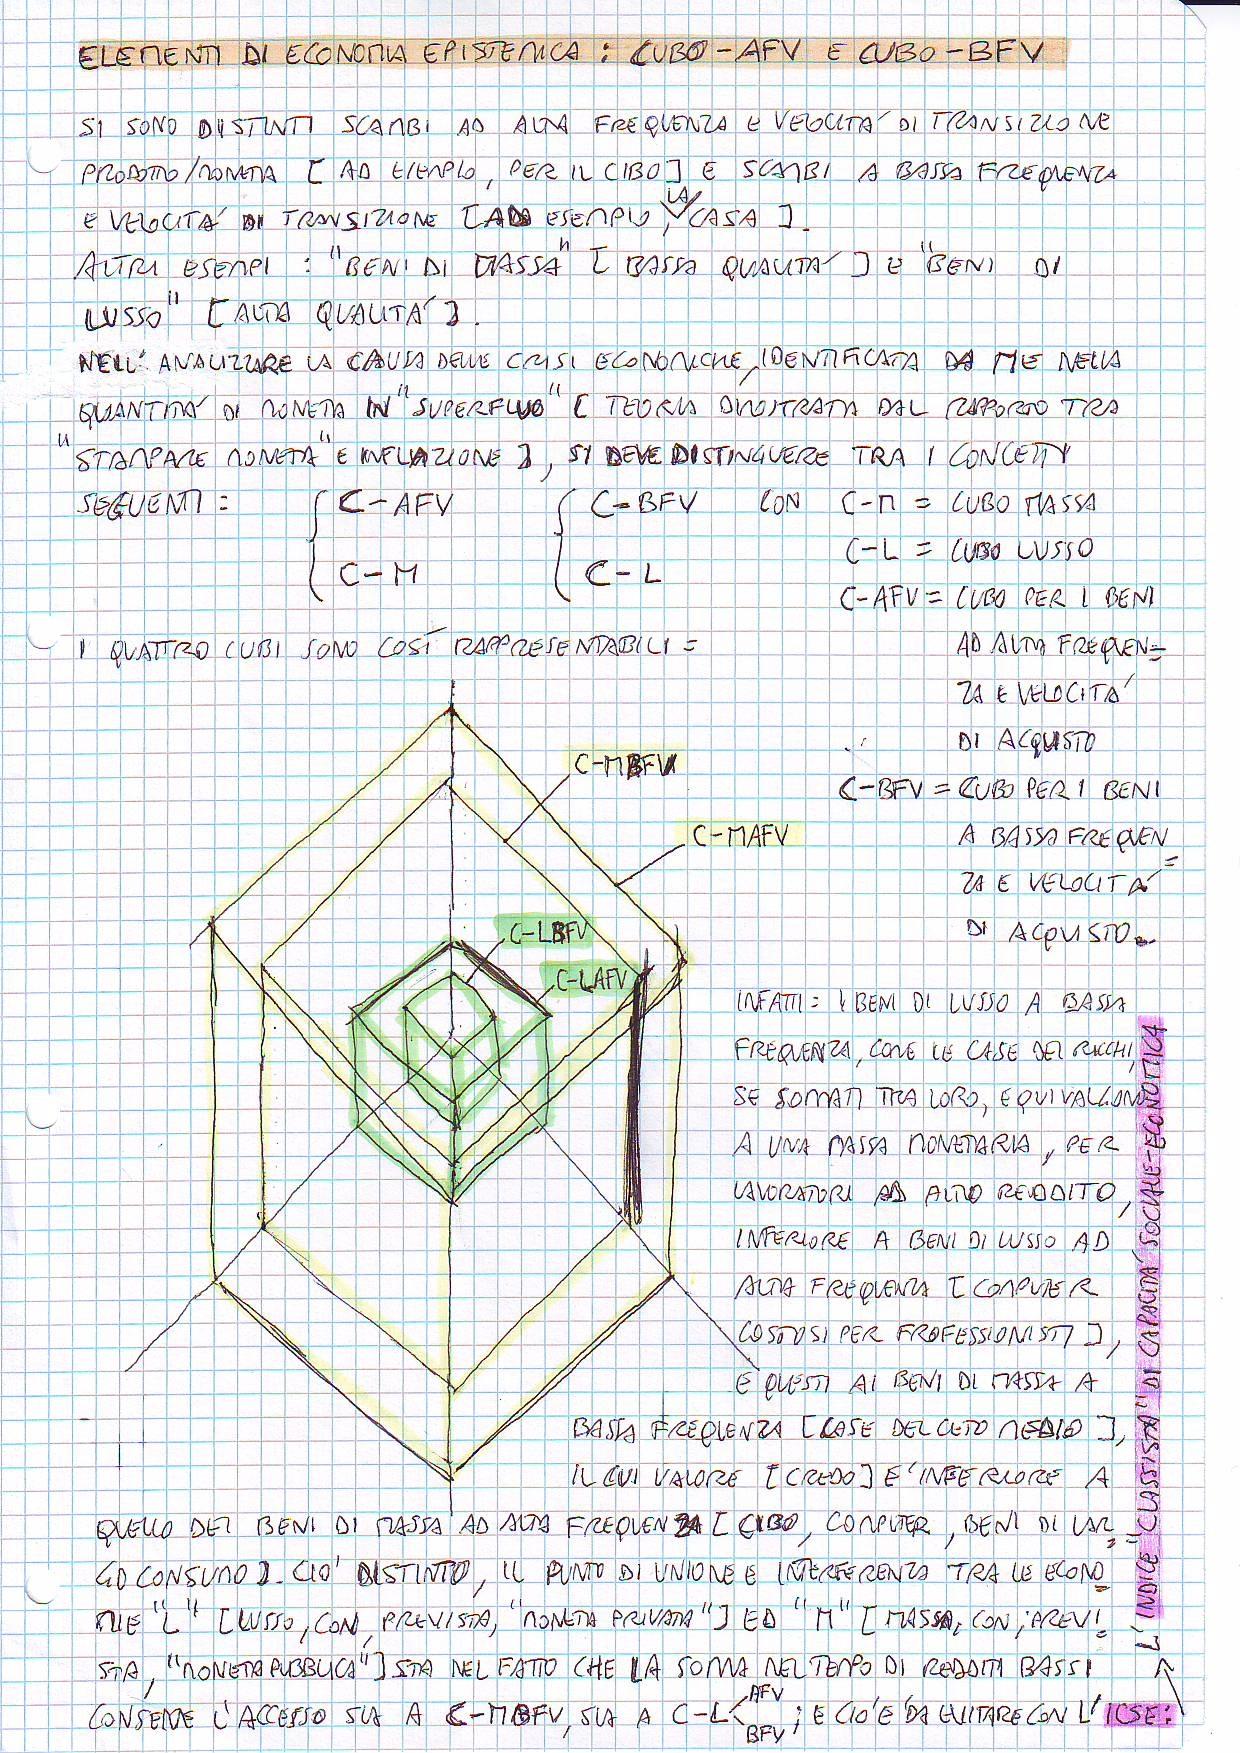 ELEMENTI DI ECONOMIA EPISTEMICA : CUBO-AFV E CUBO-BFV
SI SONO DISTINTI SCAMBI AD ALTA FREQUENZA E VELOCITA' DI TRANSIZIONE
PRODOTTO/MONETA [ AD ESEMPIO, PER IL CIBO ] E SCAMBI A BASSA FREQUENZA
E VELOCITA' DI TRANSIZIONE [ AD ESEMPIO, LA CASA ].
ALTRI ESEMPI : "BENI DI MASSA" [ BASSA QUALITA' ] E "BENI DI
LUSSO" [ ALTA QUALITA' ].
NELL' ANALIZZARE LA CAUSA DELLE CRISI ECONOMICHE, IDENTIFICATA DA ME NELLA
QUANTITA' DI MONETA IN "SUPERFLUO" [ TEORIA DIMOSTRATA DAL RAPPORTO TRA
"STAMPARE MONETA" E INFLAZIONE ], SI DEVE DISTINGUERE TRA I CONCETTI
SEGUENTI = { C-AFV { C-BFV CON C-M = CUBO MASSA
C-L = CUBO LUSSO
C-M C-L
C-AFV = CUBO PER I BENI
I QUATTRO CUBI SONO COSÍ RAPPRESENTABILI =
AD ALTA FREQUEN=
ZA E VELOCITA'
DI ACQUISTO
C-BFV = CUBO PER I BENI
A BASSA FREQUEN
=
ZA E VELOCITA'
DI ACQUISTO.
C-MBFV
C-MAFV
C-LBFV
C-LAFV
INFATTI = I BENI DI LUSSO A BASSA
FREQUENZA, COME LE CASE DEI RICCHI,
SE SOMMATI TRA LORO, EQUIVALGONO
A UNA MASSA MONETARIA, PER
LAVORATORI AD ALTO REDDITO,
INFERIORE A BENI DI LUSSO AD
ALTA FREQUENZA [ COMPUTER
COSTOSI PER PROFESSIONISTI ],
E QUESTI AI BENI DI MASSA A
BASSA FREQUENZA [ CASE DEL CETO MEDIO ],
IL CUI VALORE [ CREDO ] E' INFERIORE A
QUELLO DEI BENI DI MASSA AD ALTA FREQUENZA [ CIBO, COMPUTER, BENI DI LAR=
GO CONSUMO ]. CIO' DISTINTO, IL PUNTO DI UNIONE E INTERFERENZA TRA LE ECONO
MIE "L" [ LUSSO, CON, PREVISTA, "MONETA PRIVATA" ] ED "M" [ MASSA, CON, PREVI
STA, "MONETA PUBBLICA" ] STA NEL FATTO CHE LA SOMMA NEL TEMPO DI REDDITI BASSI
CONSENTE L'ACCESSO SIA A C-MBFV, SIA A C-L < AFV BFV ; E CIO' E' DA EVITARE CON L' ICSE :
L'INDICE "CLASSISTA" DI CAPACITA' SOCIALE-ECONOMICA